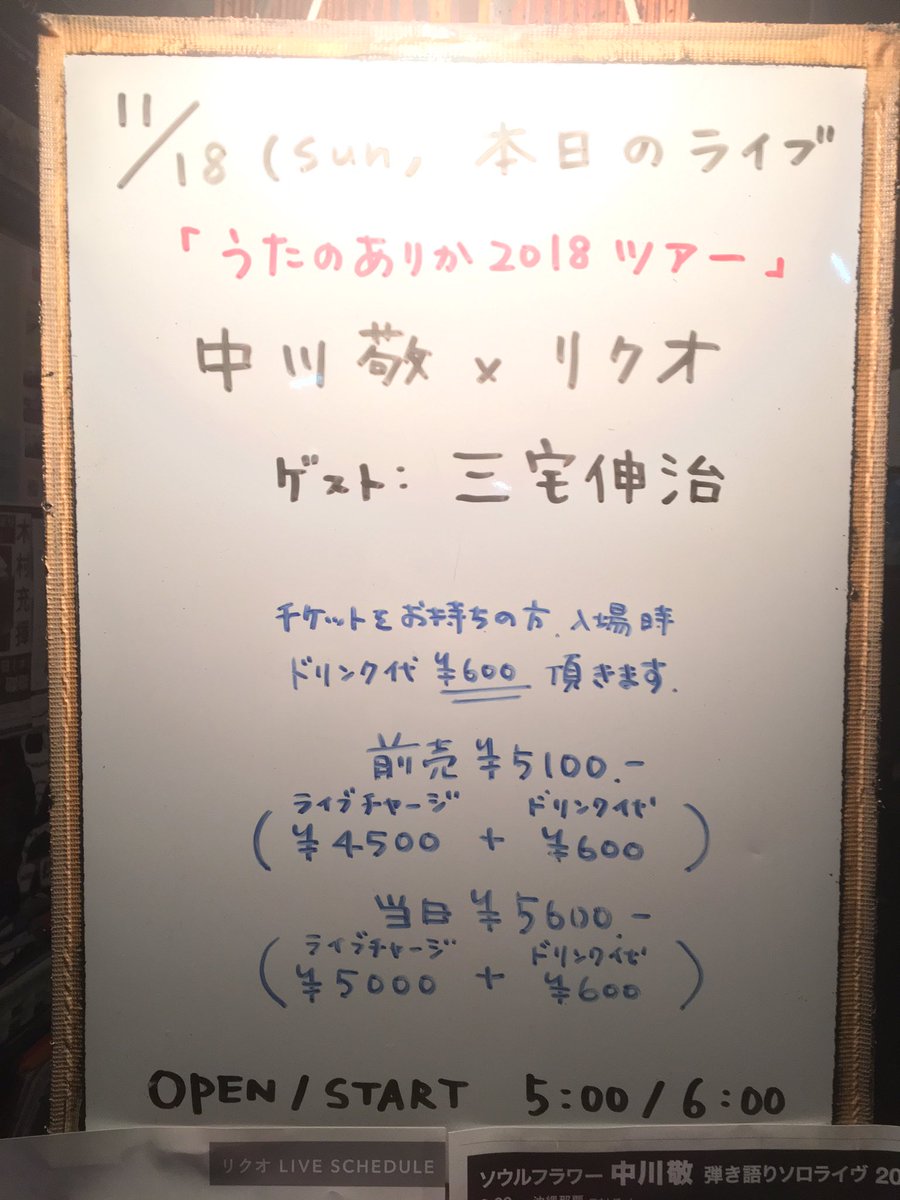 11/18 (sun, 本日のライブ
「うたのありか2018ツアー」
中川敬 x リクオ
ゲスト: 三宅伸治
チケットをお持ちの方、入場時
ドリンク代 ¥600 頂きます.
前売 ¥5100.-
ライブチャージ ドリンク代
( ¥4500 + ¥600 )
当日 ¥5600.-
ライブチャージ ドリンク代
( ¥5000 + ¥600 )
OPEN / START 5:00 / 6:00
リクオ LIVE SCHEDULE
ソウルフラワー 中川敬 弾き語りソロライヴ 20
木村充揮